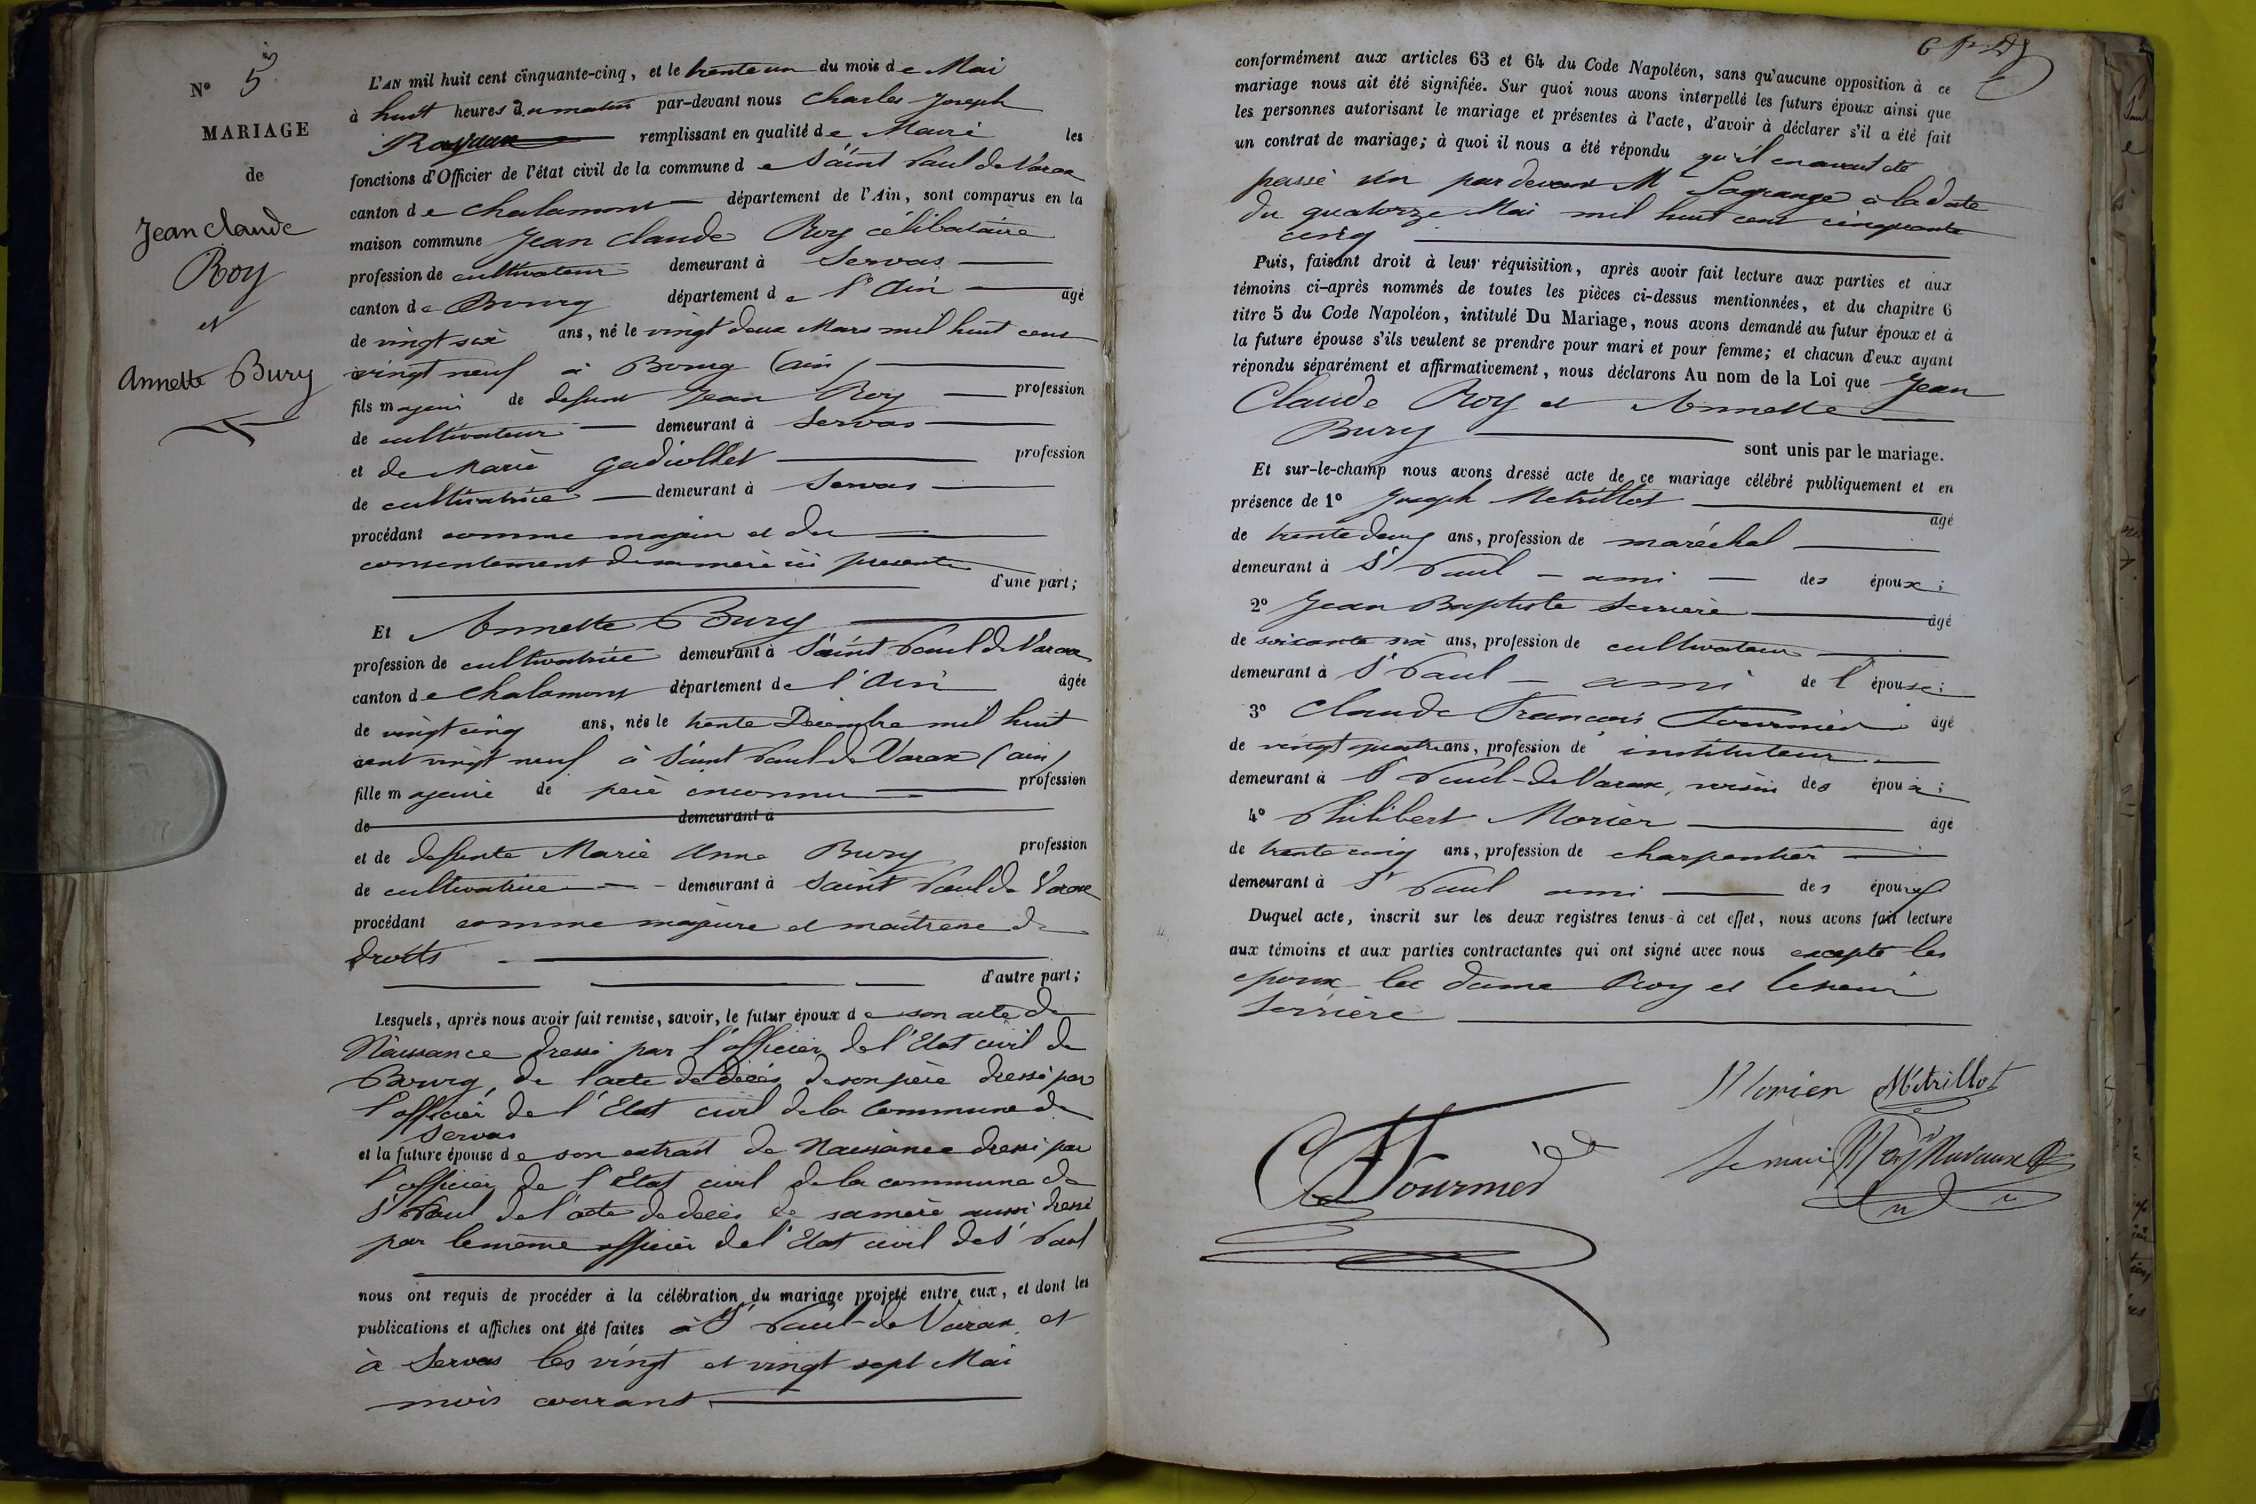 N° 5
MARIAGE
de
Jean Claude
Roy
et
Annette Bury
L'AN mil huit cent cinquante-cinq, et le trente un du mois de Mai
à huit heures du matin par-devant nous Charles Joseph
remplissant en qualité de Maire les
fonctions d'Officier de l'état civil de la commune de Saint Paul de Varax
canton de Chalamont département de l'Ain, sont comparus en la
maison commune Jean Claude Roy célibataire
profession de cultivateur demeurant à Servas
canton de Bourg département de l'Ain âgé
de vingt six ans, né le vingt deux Mars mil huit cent
vingt neuf à Bourg (ain)
fils majeur de defunt Jean Roy profession
de cultivateur demeurant à Servas
et de Marie Gadiollet profession
de cultivatrice demeurant à Servas
procédant comme majeur et du
consentement de sa mère ici presente
d'une part;
Et Annette Bury
profession de cultivatrice demeurant à Saint Paul de Varax
canton de Chalamont département de l'Ain âgée
de vingt cinq ans, née le trente Décembre mil huit
cent vingt neuf à Saint Paul de Varax (ain)
fille majeure de père inconnu profession
de demeurant à
et de defunte Marie Anne Bury profession
de cultivatrice demeurant à Saint Paul de Varax
procédant comme majeure et maitresse de
droits
d'autre part;
Lesquels, après nous avoir fait remise, savoir, le futur époux de son acte de
Naissance dressé par l'officier de l'Etat civil de
Bourg, de l'acte de décès de son père dressé par
l'officier de l'Etat civil de la Commune de
Servas
et la future épouse de son extrait de Naissance dressé par
l'officier de l'Etat civil de la commune de
St Paul de l'acte de décès de sa mère aussi dressé
par le même officier de l'Etat civil de St Paul
nous ont requis de procéder à la célébration du mariage projeté entre eux, et dont les
publications et affiches ont été faites à St Paul-de Varax et
à Servas les vingt et vingt sept Mai
mois courant
conformément aux articles 63 et 64 du Code Napoléon, sans qu'aucune opposition à ce
mariage nous ait été signifiée. Sur quoi nous avons interpellé les futurs époux ainsi que
les personnes autorisant le mariage et présentes à l'acte, d'avoir à déclarer s'il a été fait
un contrat de mariage; à quoi il nous a été répondu qu'il en avait été
passé un par devant M Lagrange à la date
du quatorze Mai mil huit cent cinquante
cinq
Puis, faisant droit à leur réquisition, après avoir fait lecture aux parties et aux
témoins ci-après nommés de toutes les pièces ci-dessus mentionnées, et du chapitre 6
titre 5 du Code Napoléon, intitulé Du Mariage, nous avons demandé au futur époux et à
la future épouse s'ils veulent se prendre pour mari et pour femme; et chacun d'eux ayant
répondu séparément et affirmativement, nous déclarons Au nom de la Loi que Jean
Claude Roy et Annette
Bury
sont unis par le mariage.
Et sur-le-champ nous avons dressé acte de ce mariage célébré publiquement et en
présence de 1° Joseph Metrillot âgé
de trente deux ans, profession de maréchal
demeurant à St Paul - ami - des époux;
2° Jean Baptiste Serrière âgé
de soixante six ans, profession de cultivateur
demeurant à St Paul - ami de l'épouse;
3° Claude Francois Fournier âgé
de vingt quatre ans, profession de instituteur
demeurant à St Paul-de Varax, voisin des époux;
4° Philibert Morier âgé
de trente cinq ans, profession de charpentier
demeurant à St Paul ami des époux
Duquel acte, inscrit sur les deux registres tenus à cet effet, nous avons fait lecture
aux témoins et aux parties contractantes qui ont signé avec nous excepté les
époux la dame Roy et le sieur
Serrière
Morier Métrillot
Fournier
Le maire